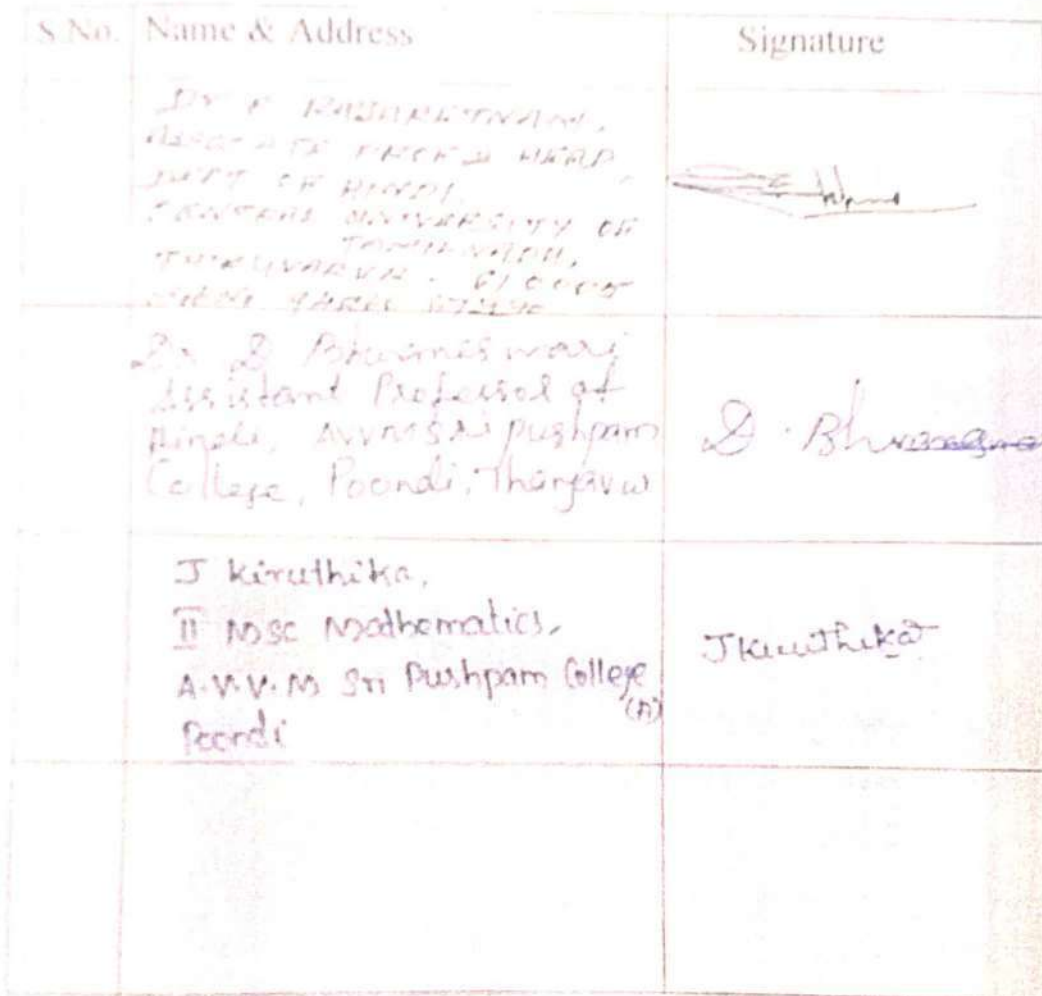 S.No. Name & Address Signature
Dr
ASSOCIATE PROF & HEAD,
DEPT OF HINDI,
CENTRAL UNIVERSITY OF
TAMILNADU,
D. Bhuvaneswari
Assistant Professor of
Hindi, AVVM Sri pushpam
College, Poondi, Thanjavur
D. Bhuvanes
J Kiruthika,
II MSc Mathematics,
A.V.V.M Sri Pushpam College
(A)
Poondi
J Kiruthika